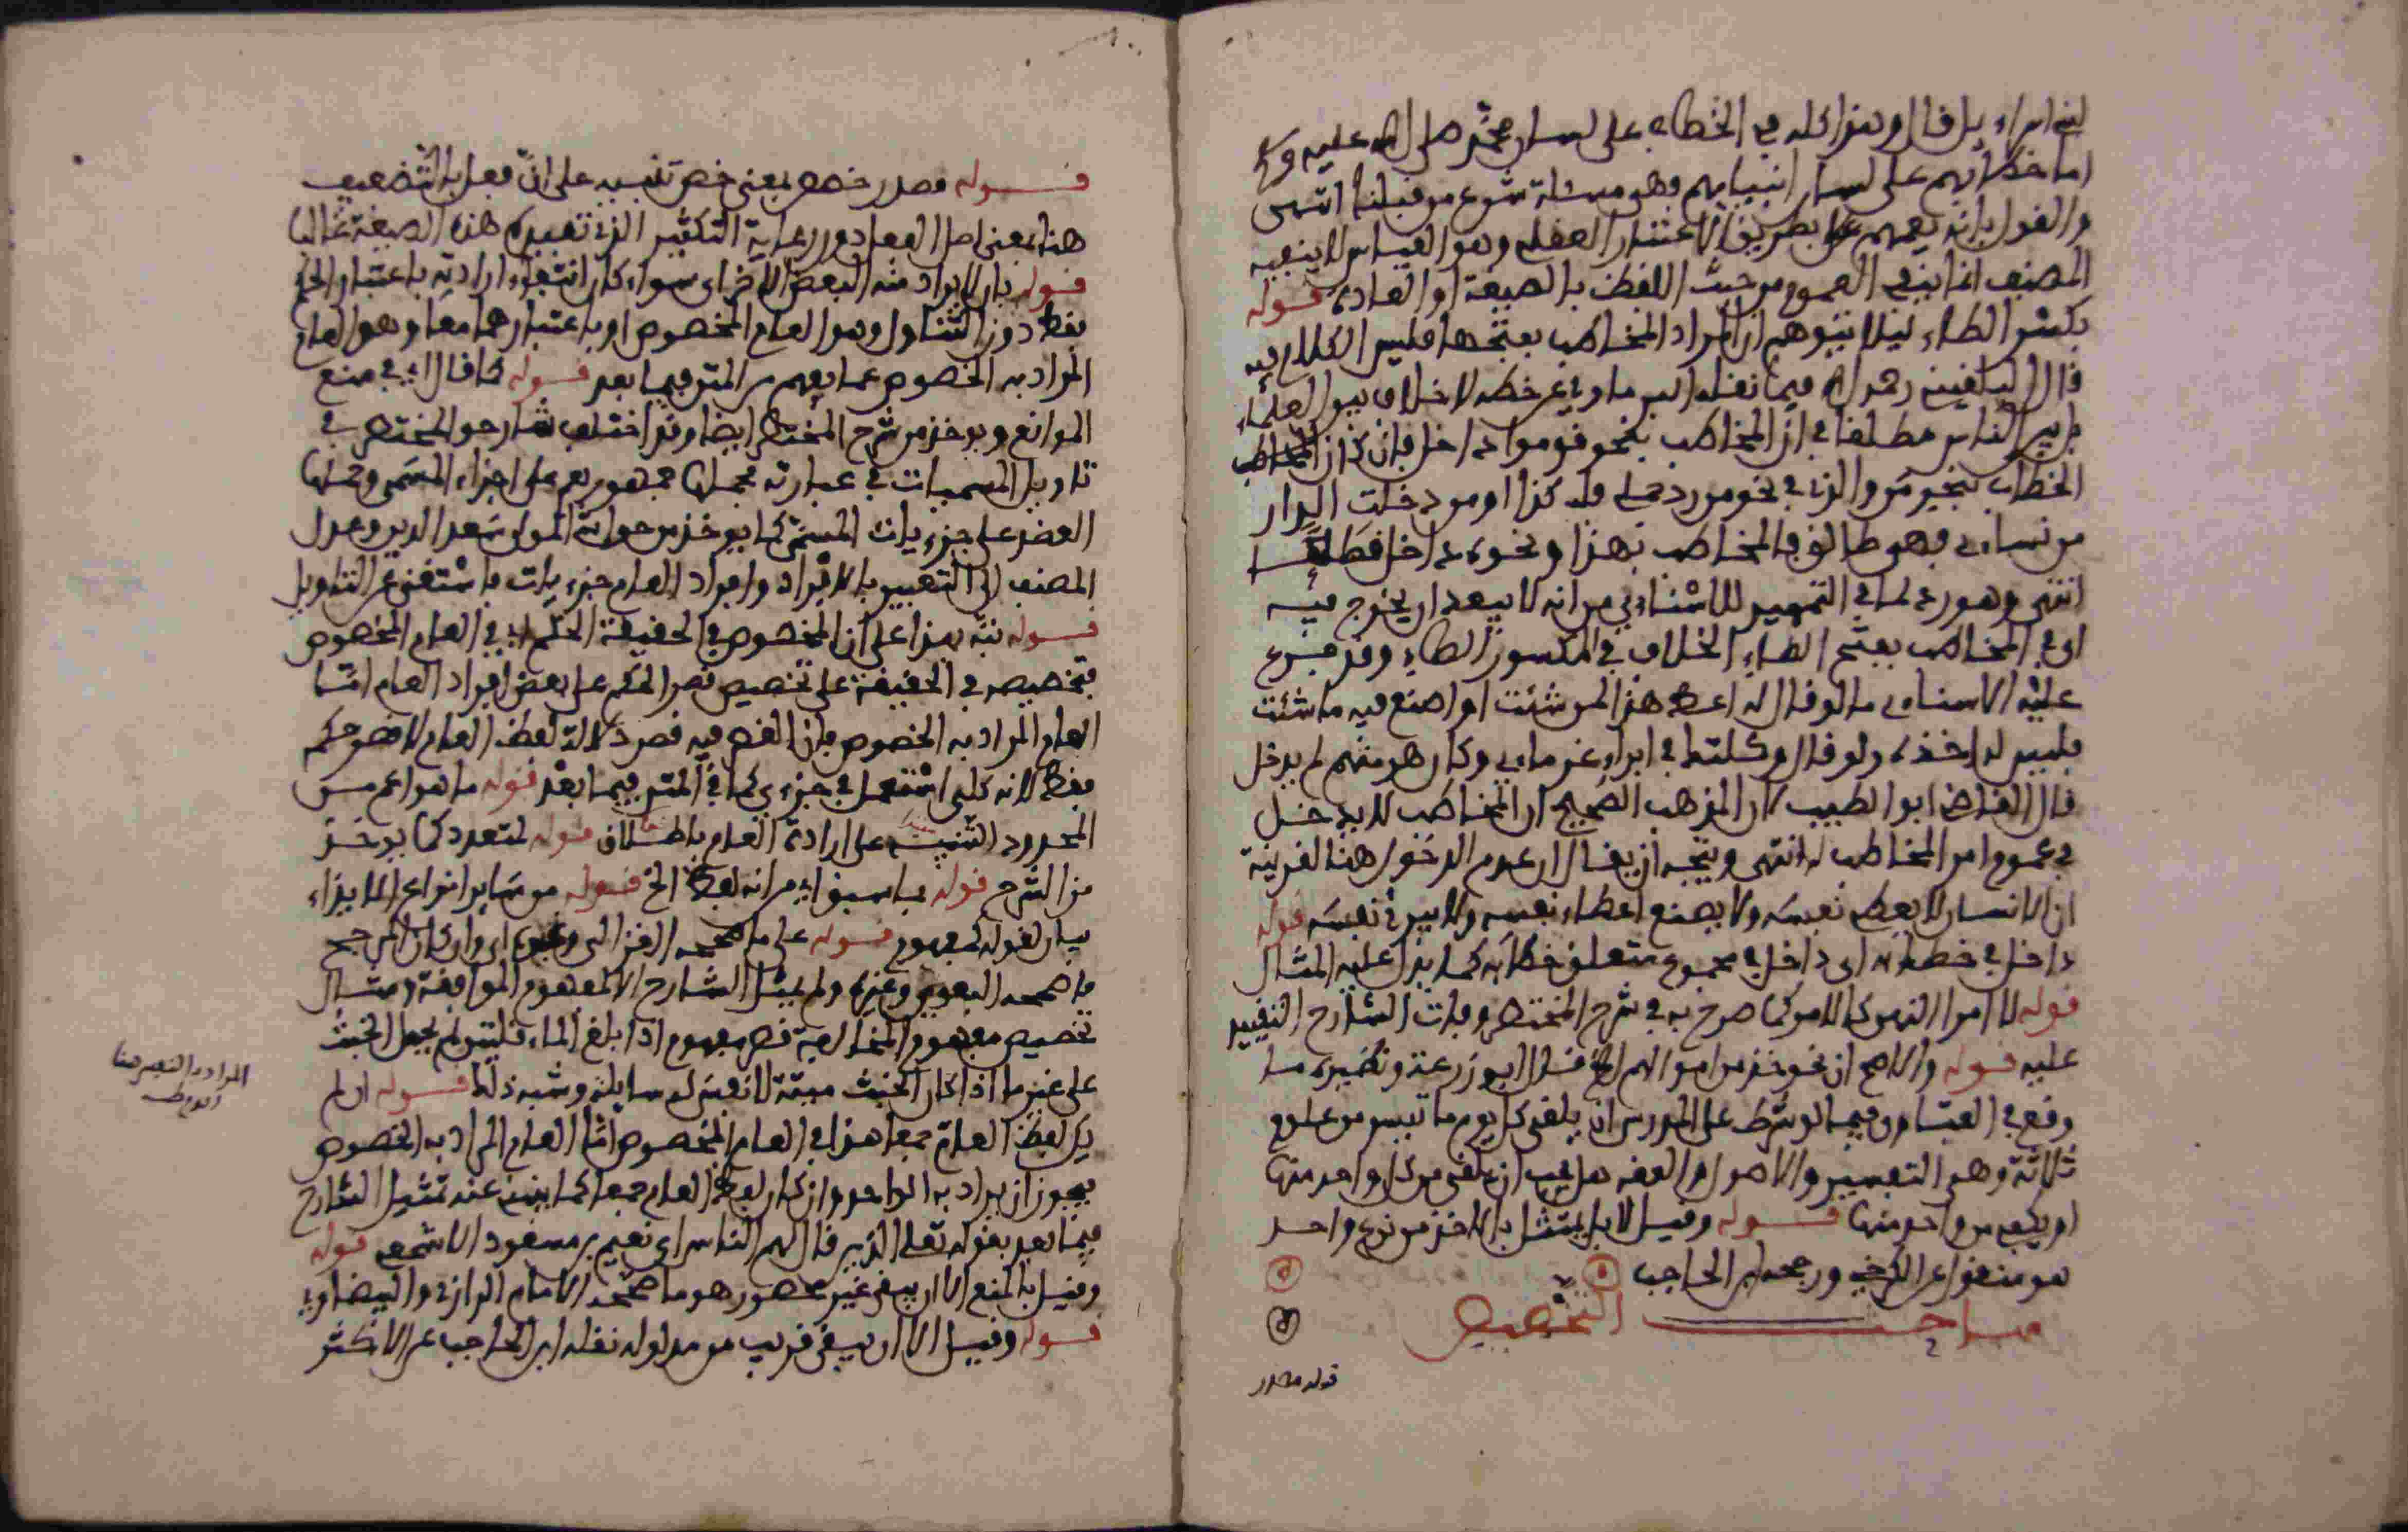 لبني اسراءيل قال وهذا كله في الخطاب على لسان محمد صلى الله عليه وسلم
اما خطابهم على لسان انبيايهم فهي مسئلة شرع من قبلنا انتهى
والقول بانه يعمهم بطريق الاعتبار العقلي وهو القياس لا ينفيه
المصنف انما ينفي العموم من حيث اللفظ بالصيغة او العادة قوله
بكسر الطاء ليلا يتوهم ان المراد المخاطب بفتحها فليس الكلام فيه
قال البلقيني رحمه الله فيما نقله البرماوي عن خطه لا خلاف بين العلماء
بل بين الناس مطلقا في ان المخاطب بنحو قوموا داخل فان كان المخاطب
الخطاب بنحو من والذي في نحو من رد عبدي فله كذا او من دخلت الدار
من نساءي فهي طالق فالمخاطب بهذا ونحوه داخل قطعا
انتهى وهو رد لما في التمهيد للاسناءي من انه لا يبعد ان يخرج فيه
اى في المخاطب بفتح الطاء الخلاف في المكسور الطاء وقد فرع
عليه الاسناءي ما لو قال له اعط هذا لمن شئت او اصنع فيه ما شئت
فليس له اخذه ولو قال وكلتك في ابراء غرماءي وكان هو منهم لم يدخل
قال القاضي ابو الطيب لان المذهب الصحيح ان المخاطب لا يدخل
في عموم امر المخاطب له انتهى ويتجه ان يقال ان عدم الدخول هنا لقرينة
ان الانسان لا يعطي نفسه ولا يصنع اعطاء نفسه ولا يبرئ نفسه قوله
داخل في خطابه اى داخل في عموم متعلق خطابه كما يدل عليه المثال
قوله لا امرا النهي كالامر كما صرح به في شرح المختصر وفات الشارح التنبيه
عليه قوله والاصح ان نحو خذ من اموالهم الخ قال ابو زرعة ونظيره ما
وقع في الفتاوى فيما لو شرط على المدرس ان يلقي كل يوم ما تيسر من علوم
ثلاثة وهي التفسير والاصول والفقه هل يجب ان يلقي من كل واحد منها
او يكفي من واحد منها قوله وقيل لا بل يمتثل بالاخذ من نوع واحد
هو منقول عن الكرخي ورجحه ابن الحاجب
مباحث التخصيص
قوله مصدر
قوله مصدر خصص بمعنى خص تنبيه على ان فعل بالتضعيف
هنا بمعنى اصل الفعل دون رعاية التكثير الذي تفيده هذه الصيغة غالبا
قوله بان لا يراد منه البعض الاخر اى سواء كان انتفاء ارادته باعتبار الحكم
فقط دون التناول وهو العام المخصوص او باعتبارهما معا وهو العام
المراد به الخصوص كما يفهم من المتن فيما بعد قوله كما قال اي في منع
الموانع ويوخذ من شرح المختصر ايضا وقد اختلف شارحو المختصر في
تاويل المسميات في عبارته فحملها جمهورهم على اجزاء المسمى وحملها
العضد على جزءيات المسمى كما يوخذ من حواشي المولى سعد الدين وعدل
المصنف الى التعبير بالافراد وافراد العام جزءيات فاستغنى عن التاويل
قوله نبه بهذا على ان المخصوص في الحقيقة الحكم اي في العام المخصوص
فتخصيصه في الحقيقة على تخصيص قصر الحكم على بعض افراد العام اما
العام المراد به الخصوص فان القصر فيه قصر دلالة لفظ العام لا قصر حكمه
فقط لانه كلي استعمل في جزءي كما في المتن فيما بعد قوله ما هو اعم من
المحدود التنبيه على ارادة العام باطلاق قوله لمتعدد كما يوخذ
من الشرح قوله بما سبق اي من انه لفظ الخ قوله من ساير انواع الايذاء
بيان لقوله كمفهوم قوله على ما صححه الغزالي وغيره اى وان كان المرجح
ما صححه البغوي وغيره ولم يمثل الشارح الا لمفهوم الموافقة ومثال
تخصيص مفهوم المخالفة قصر مفهوم اذا بلغ الماء قلتين لم يحمل الخبث
على غير ما اذا كان الخبث ميتة لا نفس لها سايلة وشبه ذلك قوله ان لم
يكن لفظ العام جمعا هذا في العام المخصوص اما العام المراد به الخصوص
فيجوز ان يراد به الواحد وان كان لفظ العام جمعا كما ينبئ عنه تمثيل الشارح
فيما بعد بقوله تعلى الذين قال لهم الناس اى نعيم بن مسعود الاشجعي قوله
وقيل بالمنع الا ان يبقى غير محصور هو ما صححه الامام الرازي والبيضاوي
قوله وقيل الا ان يبقى قريب من مدلوله نقله ابن الحاجب عن الاكثر